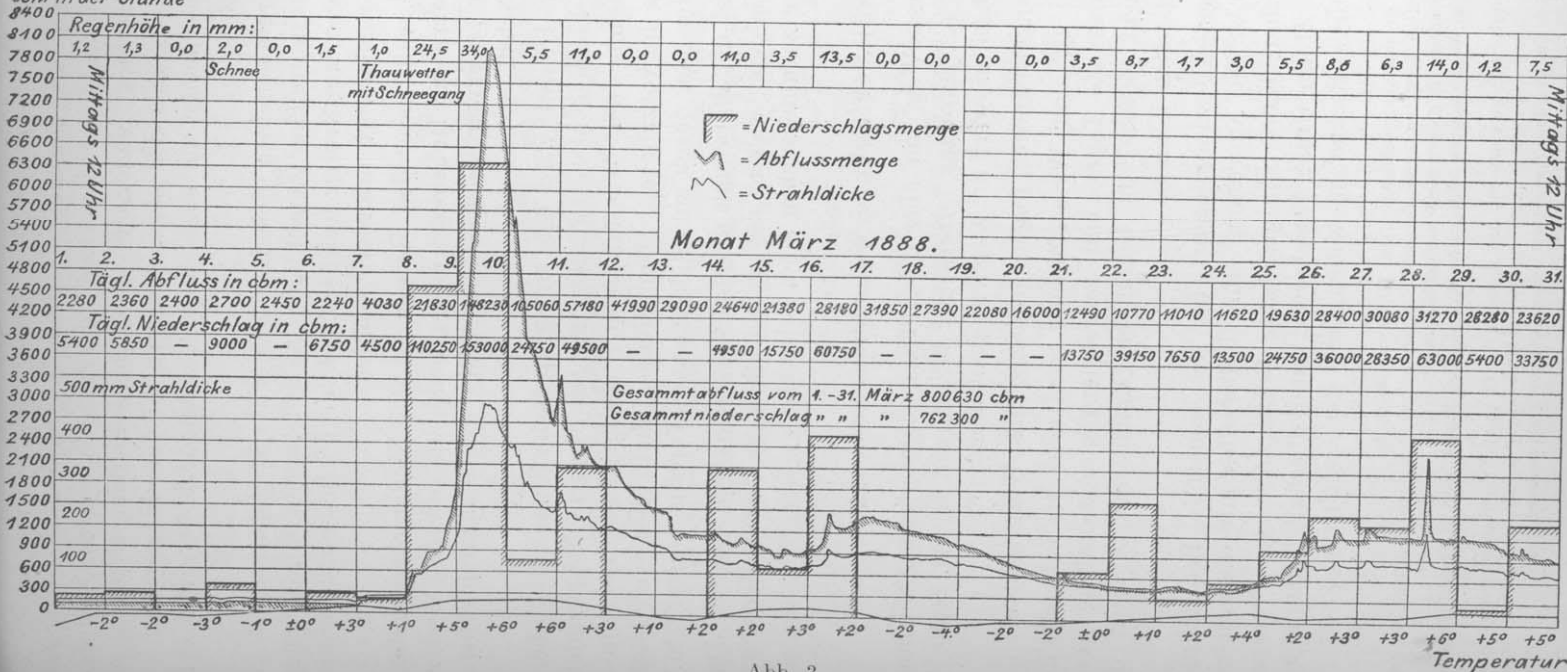 cbm in der Stunde
8400
8100
7800
7500
7200
6900
6600
6300
6000
5700
5400
5100
4800
4500
4200
3900
3600
3300
3000
2700
2400
2100
1800
1500
1200
900
600
300
0
Regenhöhe in mm:
1,2 1,3 0,0 2,0 0,0 1,5 1,0 24,5 34,0 5,5 11,0 0,0 0,0 11,0 3,5 13,5 0,0 0,0 0,0 0,0 3,5 8,7 1,7 3,0 5,5 8,0 6,3 14,0 1,2 7,5
Schnee
Thauwetter
mit Schneegang
Mittags 12 Uhr
Mittags 12 Uhr
= Niederschlagsmenge
= Abflussmenge
= Strahldicke
Monat März 1888.
1. 2. 3. 4. 5. 6. 7. 8. 9. 10. 11. 12. 13. 14. 15. 16. 17. 18. 19. 20. 21. 22. 23. 24. 25. 26. 27. 28. 29. 30. 31.
Tägl. Abfluss in cbm:
2280 2360 2400 2700 2450 2240 4030 21830 148230 105060 57180 41990 29090 24640 21380 28180 31850 27390 22080 16000 12490 10770 11010 11620 19630 28400 30080 31270 28280 23620
Tägl. Niederschlag in cbm:
5400 5850 — 9000 — 6750 4500 110250 153000 24750 49500 — — 49500 15750 60750 — — — — 13750 39150 7650 13500 24750 36000 28350 63000 5400 33750
500 mm Strahldicke
400
300
200
100
Gesammtabfluss vom 1.-31. März 800630 cbm
Gesammtniederschlag " " " 762300 "
-2° -2° -3° -1° ±0° +3° +1° +5° +6° +6° +3° +1° +2° +2° +3° +2° -2° -4° -2° -2° ±0° +1° +2° +4° +2° +3° +3° +6° +5° +5°
Temperatur
Abb. 2